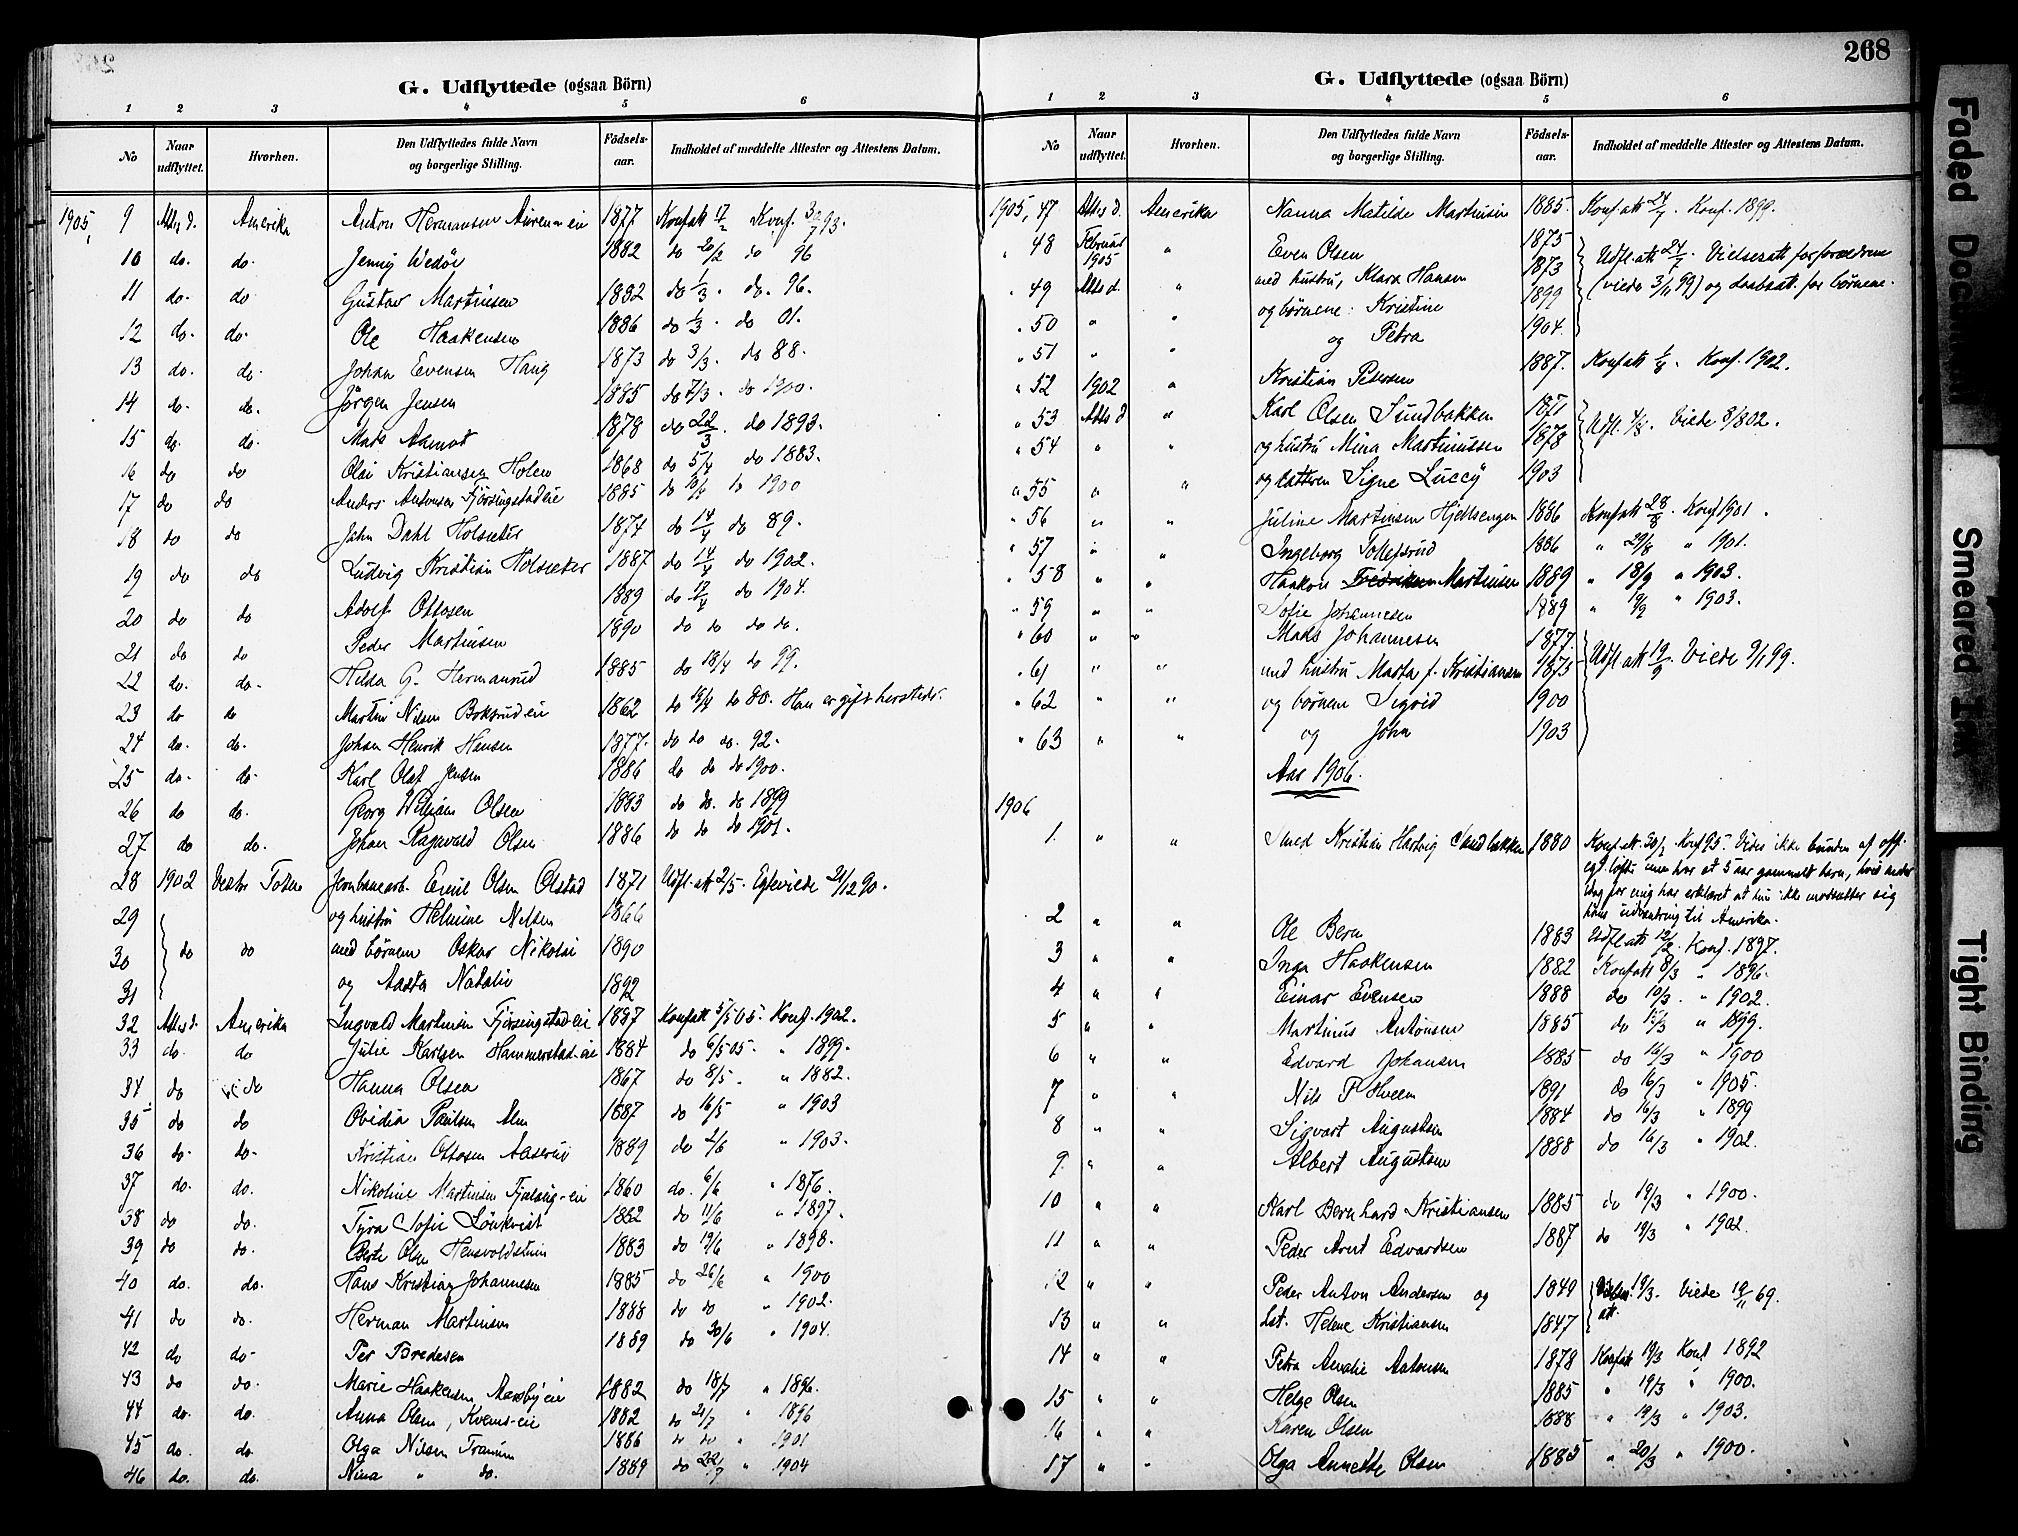 268
G. Udflyttede (ogsaa Börn)
1 2 3 4 5 6
No Naar udflyttet. Hvorhen. Den Udflyttedes fulde Navn og borgerlige Stilling. Födsels-aar. Indholdet af meddelte Attester og Attestens Datum.
1905, 9 Attes d. Amerika Anton Hermansen 1877 Konfatt 17/2 Konf. 93.
10 do. do. Jenny Wedöe 1882 do 20/2 do 96
11 do. do Gustav Martinsen 1882 do 1/3. do. 96.
12 do. do. Ole Haakensen 1886 do 1/3. do 01.
13 do. do. Johan Evensen Haug 1873 do 3/3. do 88.
14 do. do. Jörgen Jensen 1885 do 7/3. do 1900.
15 do. do. Mads Aamot 1878 do 22/3. do 1893.
16 do do Olai Kristiansen Holen 1868 do 5/4 do 1883.
17 do do Anders Antonsen Fjörsingstadeie 1885 do 10/4 do 1900
18 do do John Dahl Holsæter 1874 do 14/4 do 89.
19 do do Ludvig Kristian Holsæter 1887 do 14/4 do 1902.
20 do do Adolf Ottosen 1889 do 17/4 do 1904.
21 do do Peder Martinsen 1890 do do do do.
22 do. do. Hilda G. Hermanrud 1885 do 18/4 do 99.
23 do do Martin Nilsen Boksrudeie 1862 do 18/4 do 80. Han er gift hersteds.
24 do. do. Johan Henrik Hansen 1877. do do do. 92.
25 do. do. Karl Olaf Jensen 1886 do do do 1900.
26 do do. Georg William Olsen 1883 do do. do 1899
27 do do. Johan Ragnvald Olsen 1886 do do do 1901.
28 1902 Vestre Toten Jernbanearb. Emil Olsen Olstad 1871 Udfl. att 2/5. Egteviede 21/12 90.
29 og hustru Helmine Nilsen 1866
30 do do med börnene Oskar Nikolai 1890
31 og Aasta Natalie 1892
32 Attes d. Amerika Ingvald Martinsen Fjörsingstad-eie 1887 Konfatt 5/5 05. Konf. 1902.
33 do. do Julie Karlsen Hammerstad-eie 1884 do 6/5 05. " 1899.
34 do do Hanna Olsen 1867 do 8/5. " 1882.
35 do do Ovidia Paulsen Alm 1887 do 16/5 " 1903
36 do. do. Kristian Ottosen Aaserud 1889 do 2/6 " 1903.
37 do. do. Nikoline Martinsen 1860 do. 6/6 " 1876.
38 do do. Tyra Sofie Lönkvist 1882 do 11/6 " 1897.
39 do do. Berte Olsen 1883 do 19/6 " 1898.
40 do. do. Hans Kristian Johannesen 1885 do 26/6 " 1900
41 do do. Herman Martinsen 1888 do do " 1902.
42 do do. Per Bredesen 1889 do 30/6 " 1904.
43 do do. Marie Haakensen Aasbyeie 1882 do 18/7 " 1896.
44 do. do. Anna Olsen, Kvems-eie 1882 do 21/7 " 1896
45 do. do. Olga Nilsen 1886 do do " 1901
46 do. do. Nina " do. 1889 do 22/7 " 1904
G. Udflyttede (ogsaa Börn)
1 2 3 4 5 6
No Naar udflyttet. Hvorhen. Den Udflyttedes fulde Navn og borgerlige Stilling. Födsels-aar. Indholdet af meddelte Attester og Attestens Datum.
1905, 47 Attes d. Amerika Nanna Matilde Martinsen 1885. Konf. att 24/7. Konf. 1899.
" 48 Februar 1905 " Even Olsen 1875 Udfl. att 24/7. Vielsesatt for forældrene
" 49 Attes d. " med hustru, Klara Hansen 1873 (viede 3/11 99) og daabsatt. for börnene.
" 50 " " og börnene: Kristine 1899
" 51 " " og Petra 1904.
" 52 1902 " Kristian Petersen 1887. Konfatt 1/8. Konf. 1902.
" 53 Attes d " Karl Olsen Sundbakken 1871 Udfl. 4/8. Viede 8/8 02.
" 54 " " og hustru Mina Martinussen 1878
" 55 " " og datteren Signe Luccy 1903
" 56 " " Juline Martinsen Hjellsengen 1886 Konfatt 28/8. Konf 1901.
" 57 " " Ingeborg Tollefsrud 1886 " 29/8 " 1901.
" 58 " " Haakon Martinsen 1889 " 18/9 " 1903.
" 59 " " Sofie Johannesen 1889 " 19/9 " 1903.
" 60 " " Mads Johannesen 1877. Udfl. att 19/9. Viede 9/1 99.
" 61 " " med hustru Marta, f. Kristiansen 1875
" 62 " " og börnene Sigvid 1900
" 63 " " og John 1903
Aar 1906.
1906
1. " " Smed Kristian Hartvig Sundbakken 1880 Konf. att. 30/1 Konf 95. Vides ikke bunden af
har et 5 aar gammelt barn, hvis moder
for mig har erklæret at hun ikke modsætter sig
hans udvandring til Amerika.
2 " " Ole Bern 1883 Udfl. att 12/2. Konf. 1897.
3 " " Inga Haakensen 1882 Konfatt 8/3 " 1896.
4 " " Einar Evensen 1888 do 10/3. " 1902.
5 " " Martinus Antonsen 1885 do 15/3 " 1899.
6 " " Edvard Johansen 1885 do 16/3 " 1900
7 " " Nils P. Hveem 1891 do 16/3 " 1905.
8 " " Sigvart Augustsen 1884 do 16/3 " 1899
9. " " Albert Augustsen 1888 do 16/3 " 1902.
10 " " Karl Bernhard Kristiansen 1885 do 19/3 " 1900.
11 " " Peder Arnt Edvardsen 1887 do 19/3 " 1902.
12 " " Peder Anton Andersen og 1849 19/3. Viede 19/11 69.
13 " " Helene Kristiansen 1847 att.
14 " " Petra Amalie Antonsen 1878 Konfatt 19/3 Konf 1892
15 " " Helge Olsen 1885 " 19/3 " 1900.
16 " " Karen Olsen 1888 " 19/3 " 1903.
17 " " Olga Annette Olsen 1885 " 20/3 " 1900.
Faded Document
Smeared Ink
Tight Binding